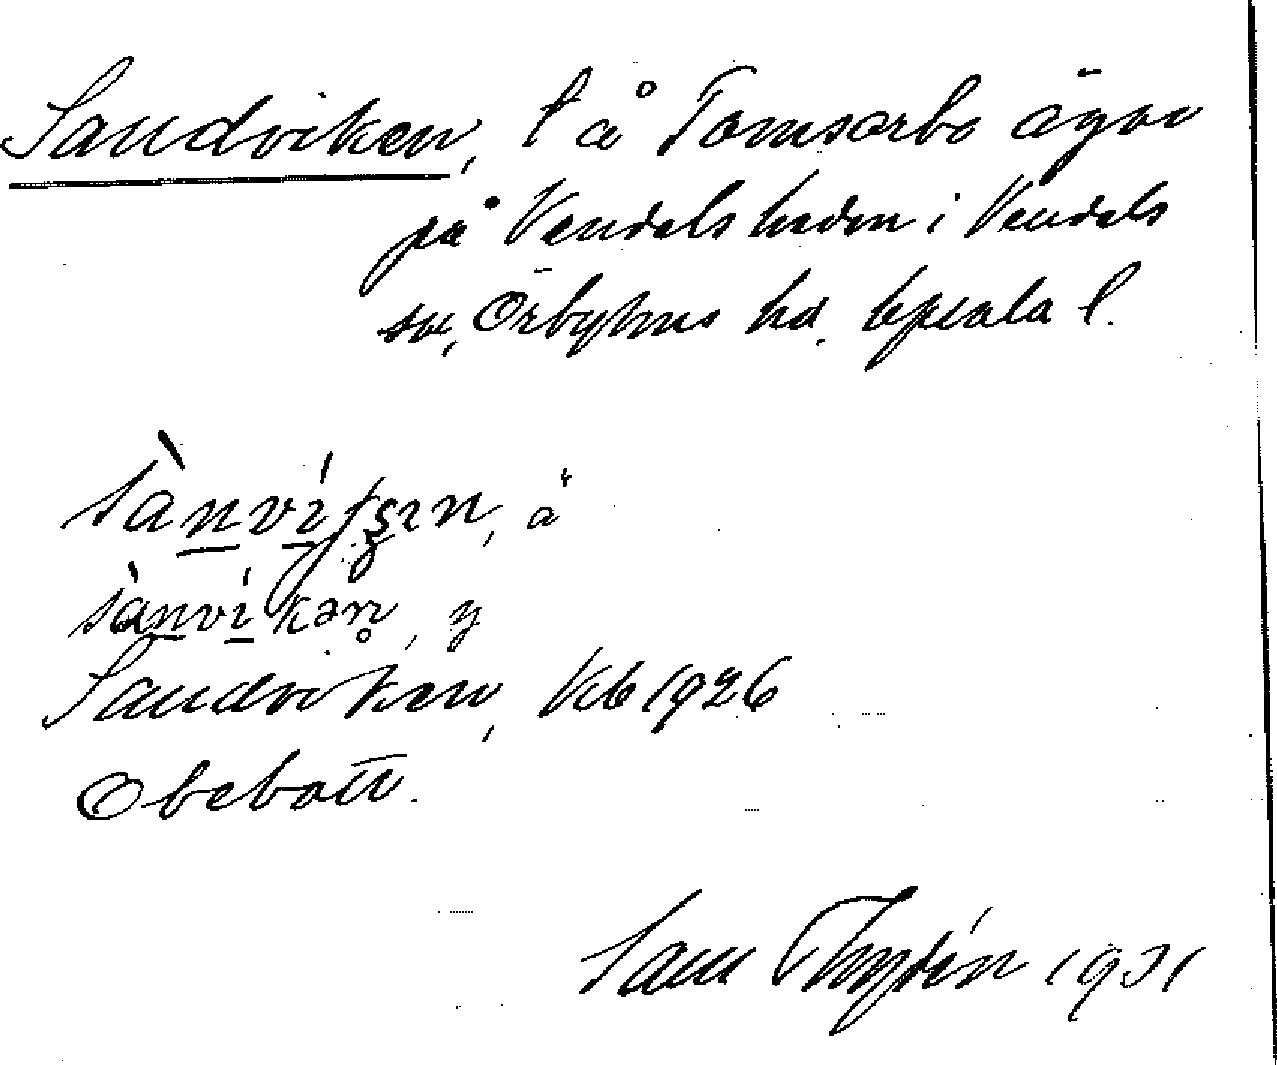 Sandviken, l å Tomsarbo ägor
på Vendelsheden i Vendels
sn, Örbyhus hd. Upsala l.
sànvíkən, y
Sandviken, Kb 1926
Obebott.
Sam Thylén 1931